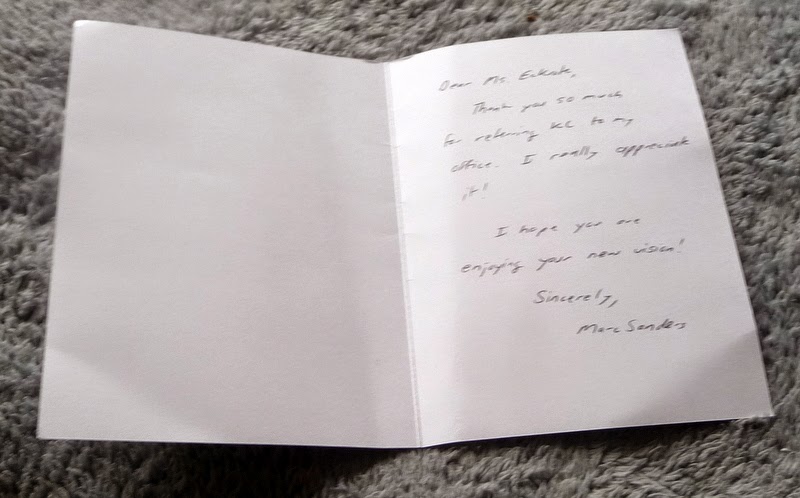 Dear Ms.
Thank you so much
for referring KC to my
office. I really appreciate
it!
I hope you are
enjoying your new vision!
Sincerely,
Marc Sanders